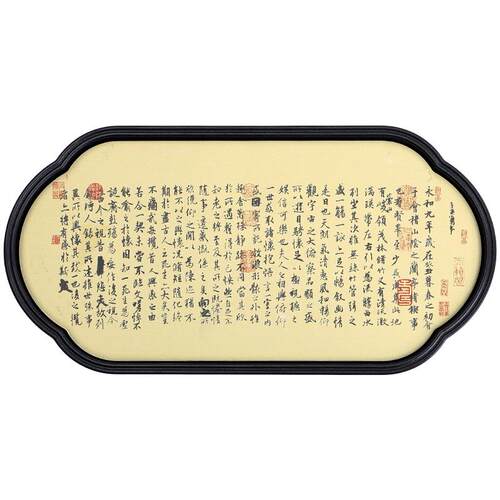 永和九年歲在癸丑暮春之初會
于會稽山陰之蘭亭脩稧事
也羣賢畢至少長咸集此地
有崇山峻領茂林脩竹又有清流激
湍暎帶左右引以為流觴曲水
列坐其次雖無絲竹管弦之
盛一觴一詠亦足以暢敘幽情
是日也天朗氣清惠風和暢仰
觀宇宙之大俯察品類之盛
所以遊目騁懷足以極視聽之
娛信可樂也夫人之相與俯仰
一世或取諸懷抱悟言一室之內
或因寄所託放浪形骸之外雖
趣舍萬殊靜躁不同當其欣
於所遇蹔得於己怏然自足不
知老之將至及其所之既惓情
隨事遷感慨係之矣向之所欣
俛仰之閒以為陳迹猶不
能不以之興懷況脩短隨化終
期於盡古人云死生亦大矣豈
不痛哉每攬昔人興感之由
若合一契未甞不臨文嗟悼不
能喻之於懷固知一死生為虛
誕齊彭殤為妄作後之視今
亦由今之視昔悲夫故列
敘時人錄其所述雖世殊事
異所以興懷其致一也後之攬
者亦將有感於斯文